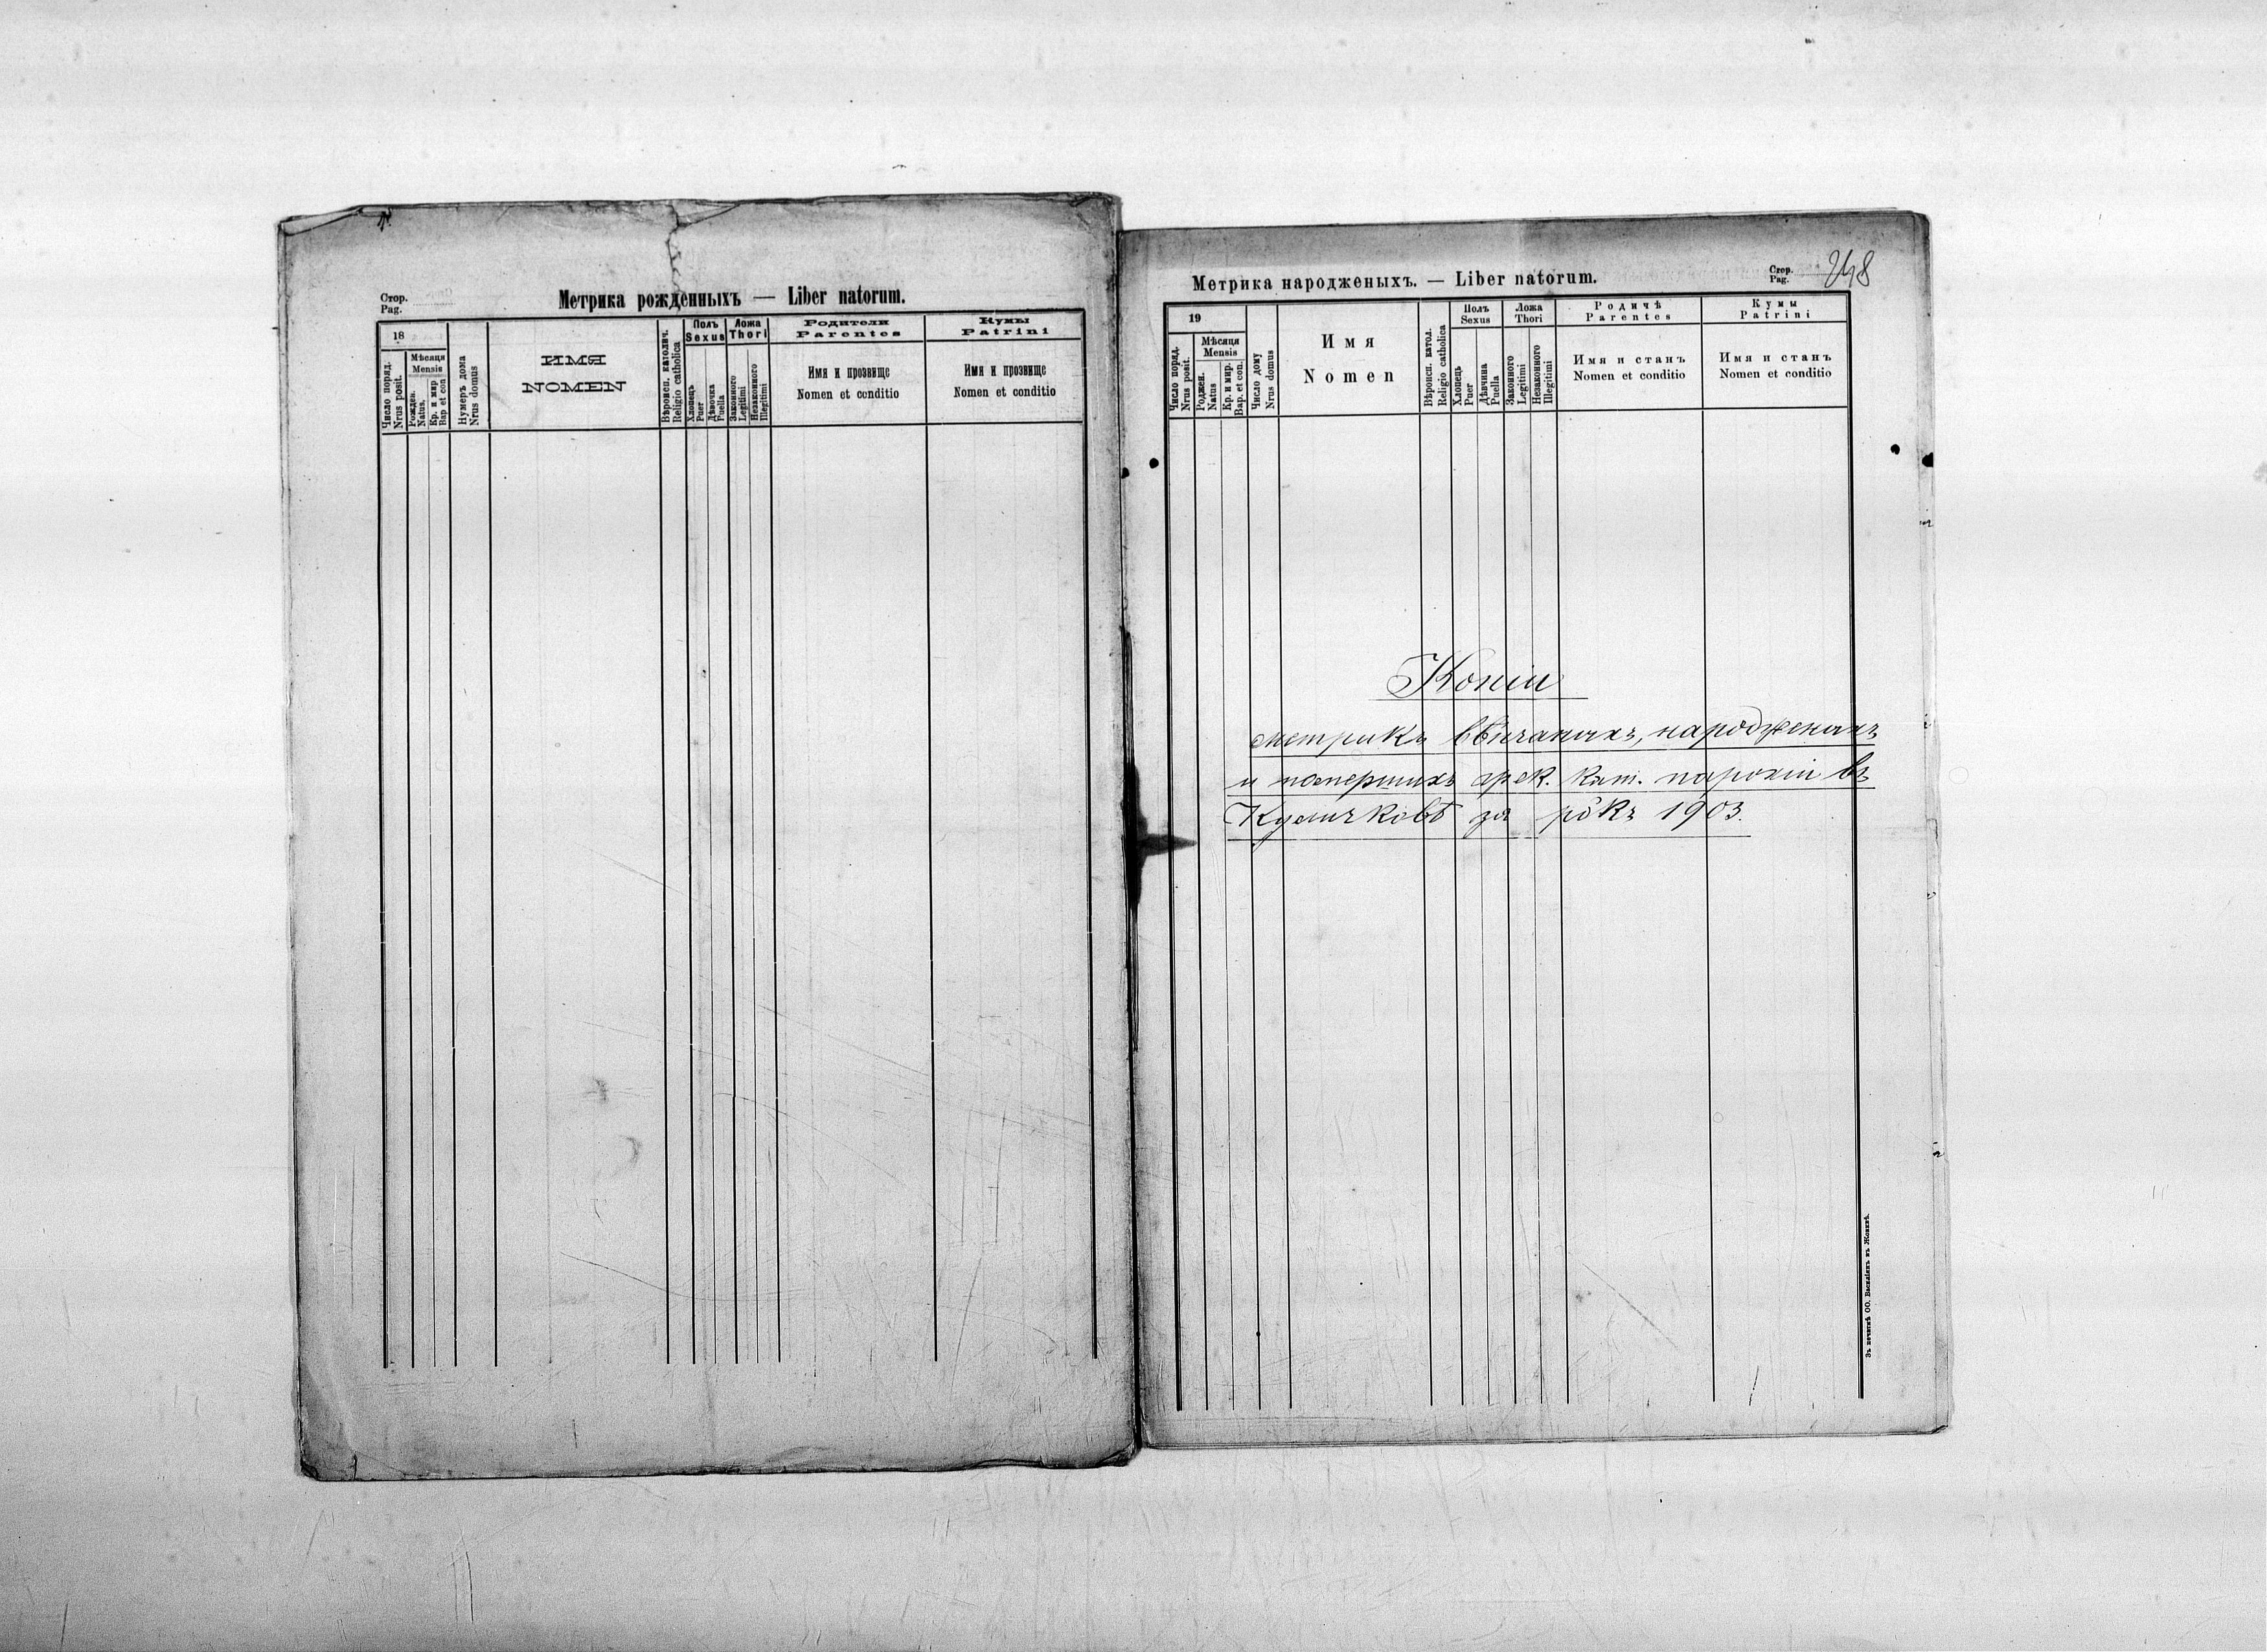 Стор.
Pag.
Метрика рожденныхъ — Liber natorum.
18
Число поряд.
Nrus posit.
Мѣсяця
Mensis
Рожден.
Natus.
Кр. и мир
Bap et con
Нумеръ дома
Nrus domus
ИМЯ
NOMEN
Вѣроисп. католич.
Religio catholica
Полъ
Sexus
Хлопець
Puer
Дѣвочка
Puella
Ложа
Thori
Законного
Legitimi
Незаконного
Illegitimi
Родители
Parentes
Имя и прозвище
Nomen et conditio
Кумы
Patrini
Имя и прозвище
Nomen et conditio
Метрика народженыхъ. — Liber natorum.
Стор.
Pag.
248
19
Число поряд.
Nrus posit.
Мѣсяця
Mensis
Роджен.
Natus
Кр. и мир.
Bap. et con.
Число дому
Nrus domus
Имя
Nomen
Вѣроисп. катол.
Religio catholica
Полъ
Sexus
Хлопець
Puer
Дѣвчина
Puella
Ложа
Thori
Законного
Legitimi
Незаконного
Illegitimi
Родичѣ
Parentes
Имя и станъ
Nomen et conditio
Кумы
Patrini
Имя и станъ
Nomen et conditio
Копіи
метрикъ вѣнчаныхъ, народженыхъ
и помершихъ грек. кат. парохіи въ
Куличковѣ за рôкъ 1903.
Зъ печатнѣ ОО. Василіянъ въ Жовквѣ.